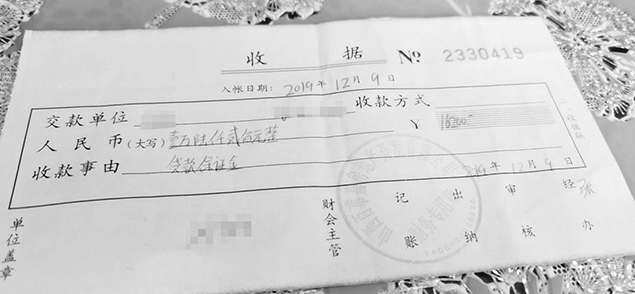 收 据 № 2330419
入帐日期: 2019年12月9日
交款单位 收款方式
人民币(大写)壹万陆仟贰佰元整 ¥ 16200-
收款事由 贷款保证金
2019年12月9日
单位盖章 财会主管 记账 出纳 审核 经办